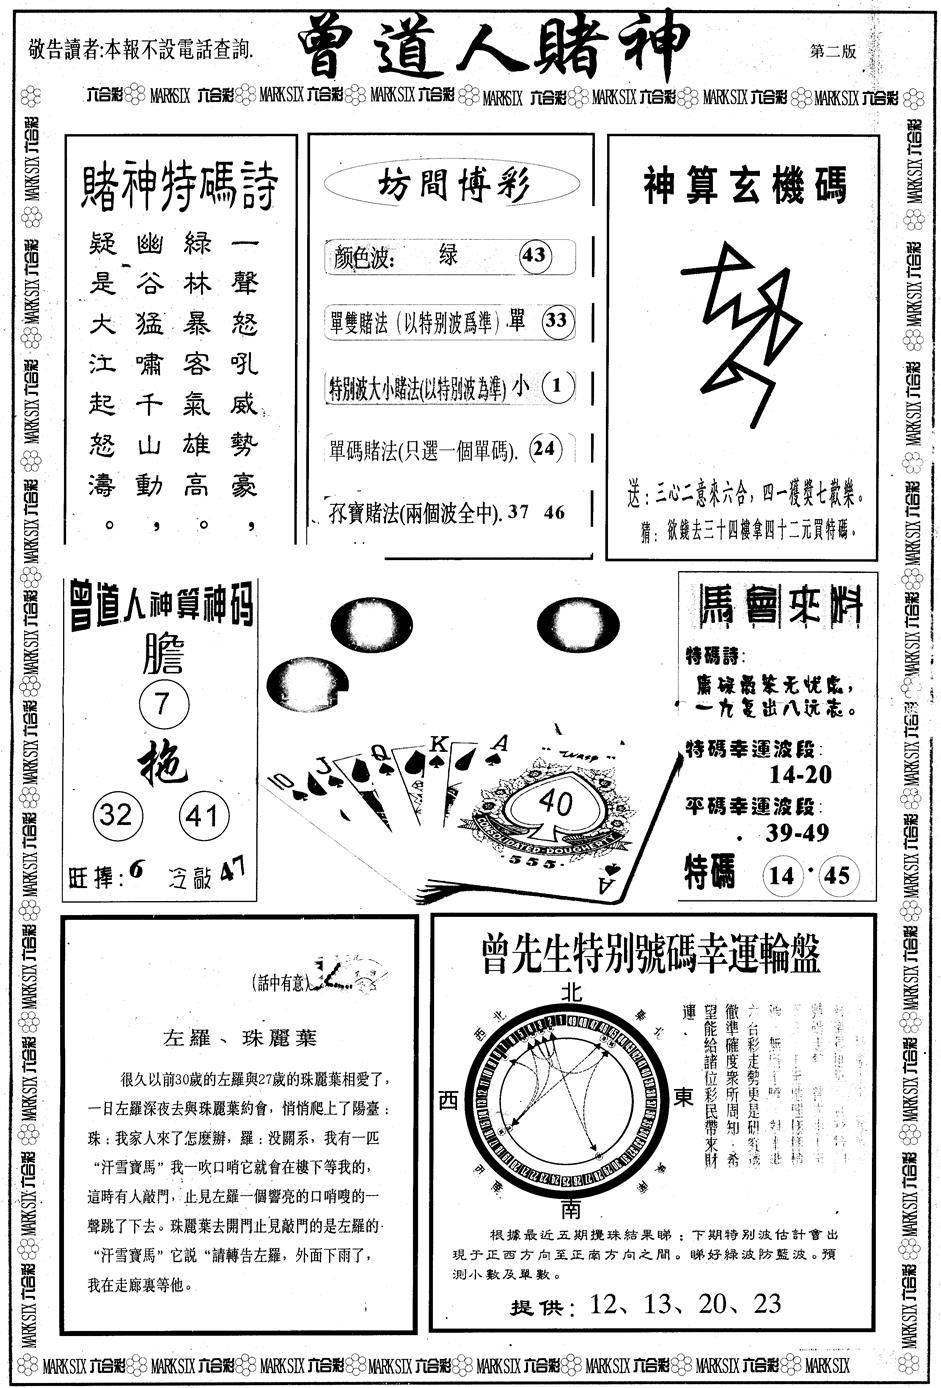 敬告讀者:本報不設電話查詢.
曾道人賭神
第二版
六合彩 MARKSIX 六合彩 MARK SIX 六合彩 MARK SIX 六合彩 MARK SIX 六合彩 MARK SIX 六合彩 MARK SIX 六合彩 MARK SIX 六合彩
賭神特碼詩
一聲怒吼威勢豪，
綠林暴客氣雄高。
幽谷猛嘯千山動，
疑是大江起怒濤。
坊間博彩
颜色波: 绿 43
單雙賭法（以特别波爲準）.單 33
特别波大小賭法(以特別波為準) 小 1
單碼賭法(只選一個單碼). 24
孖寶賭法(兩個波全中). 37 46
神算玄機碼
送：三心二意來六合，四一獲獎七歡樂。
猜：欲錢去三十四樓拿四十二元買特碼。
曾道人神算神码
膽
7
拖
32 41
旺擇:6 冷敲47
10 J Q K A
40
CONSOLIDATED-DOUGHERTY
555
A
馬會來料
特碼詩:
一九
出八远志。
特碼幸運波段:
14-20
平碼幸運波段:
39-49
特碼 14·45
(話中有意)
左羅、珠麗葉
很久以前30歲的左羅與27歲的珠麗葉相愛了，
一日左羅深夜去與珠麗葉約會，悄悄爬上了陽臺：
珠：我家人來了怎麼辦，羅：没關系，我有一匹
“汗雪寶馬”我一吹口哨它就會在樓下等我的，
這時有人敲門，止見左羅一個響亮的口哨嗖的一
聲跳了下去。珠麗葉去開門止見敲門的是左羅的
“汗雪寶馬”它説“請轉告左羅，外面下雨了，
我在走廊裏等他。
曾先生特别號碼幸運輪盤
北
西北
東北
西
東
西南
東南
南
六合彩走勢更是研究透
徹準確度衆所周知·希
望能給諸位彩民帶來財
運、
根據最近五期攪珠結果睇：下期特别波估計會出
現于正西方向至正南方向之間。睇好綠波防藍波。預
測小數及單數。
提供：12、13、20、23
MARK SIX 六合彩 MARK SIX 六合彩 MARK SIX 六合彩 MARK SIX 六合彩 MARK SIX 六合彩 MARK SIX 六合彩 MARK SIX 六合彩 MARK SIX